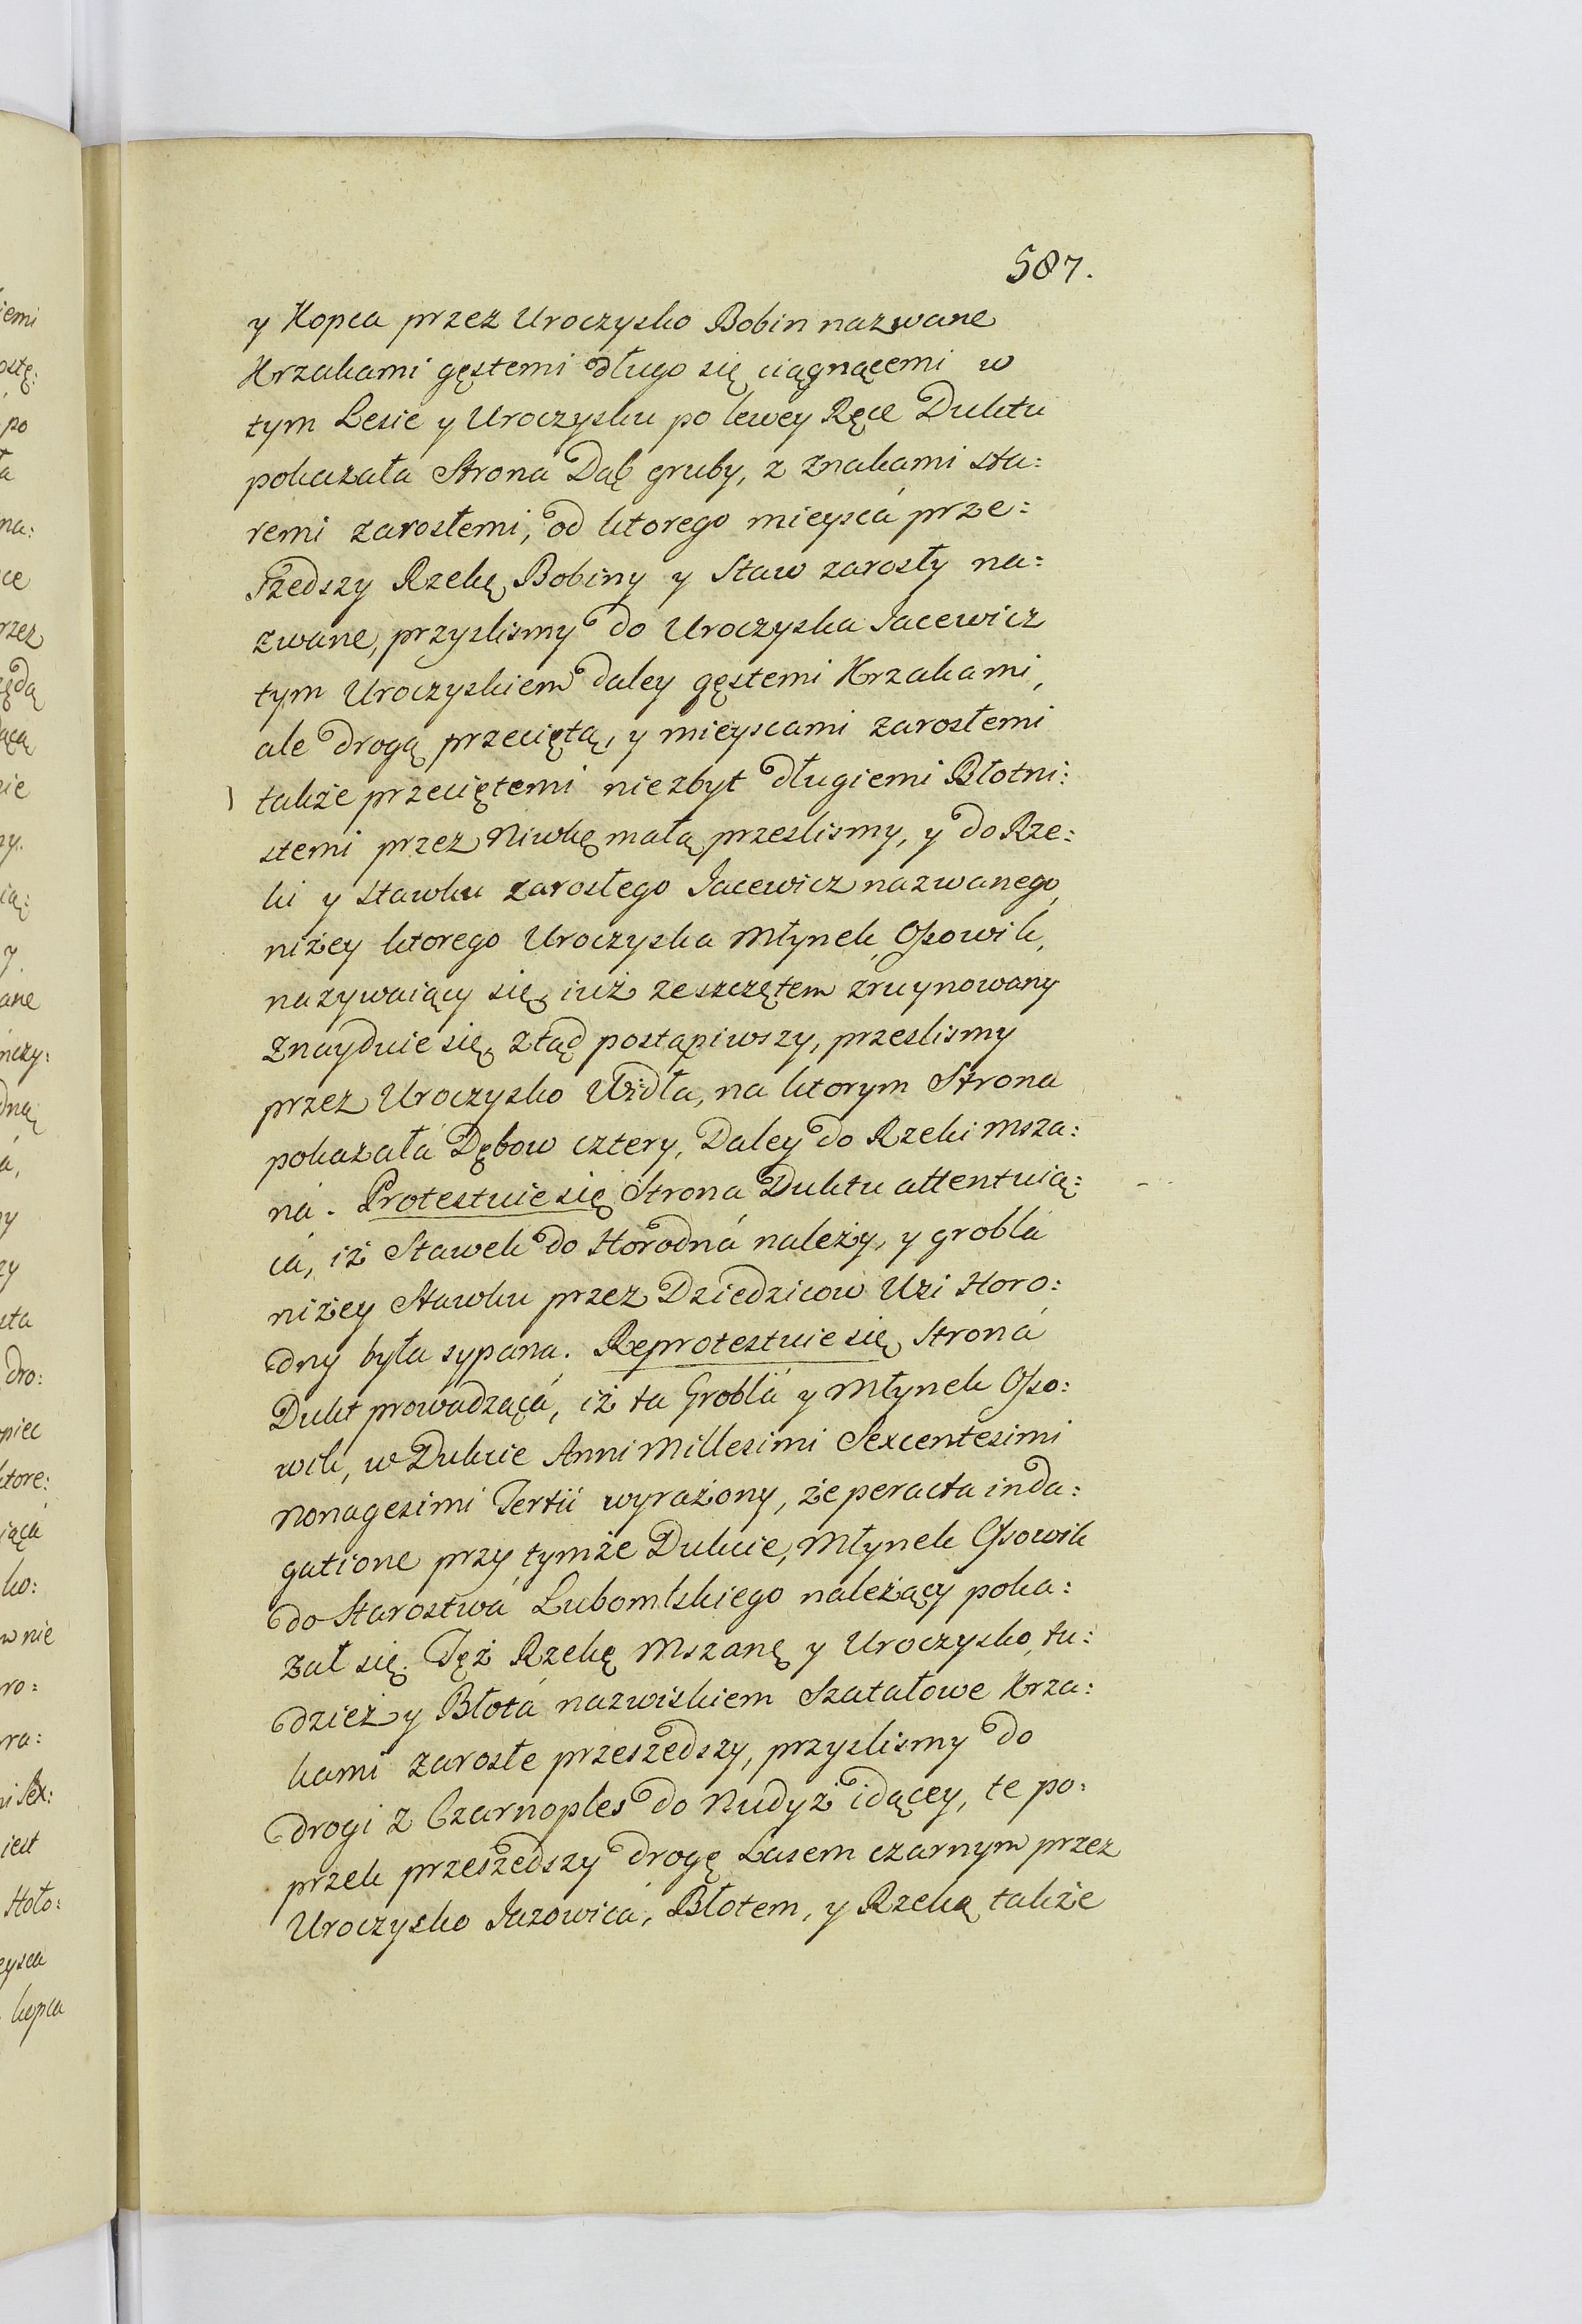 587.
y Kopca przez Uroczysko Bobin nazwane
Krzakami gęstemi długo się ciągnącemi w
tym Lesie y Uroczysku po lewey Ręce Duktu
pokazała Strona Dąb gruby, z Znakami sta:
remi zarosłemi, od ktorego mieyscá prze:
szedszy Rzekę Bobiny y Staw zarosły na:
zwane, przyslismy do Uroczyska Jacewicz
tym Uroczyskiem daley gęstemi Krzakami,
ale drogą przeciętą, y mieyscami zarosłemi
także przeciętemi niezbyt długiemi Błotni:
stemi przez Niwkę małą przeslismy, y do Rze:
ki y Stawku zarosłego Jacewicz nazwanego,
niżey ktorego Uroczyska Młynek, Ossowik,
nazywaiący się, iuż zeszczętem zruynowany
Znayduie się, ztąd postąpiwszy, przeslismy
przez Uroczysko Widła, na ktorym Strona
pokazałá Dębow cztery, Daley do Rzeki Msza:
ná. Protestuie się Strona Duktu attentuią:
cá, iż Stawek do Horodná należy, y groblá
niżey Stawku przez Dziedzicow Wsi Horo:
dny była sypana. Reprotestuie się Stroná
Dukt prowadzącá, iż ta Groblá y Młynek Osso:
wik, w Dukcie Anni Millesimi Sexcentesimi
Nonagesimi Tertii wyrażony, że peracta inda:
gatione przy tymże Dukcie, Młynek Ossowik
do Starostwá Lubomlskiego należący poka:
zał się. Też Rzekę Mszanę y Uroczysko, tu:
dzież y Błotá nazwiskiem Szatałowe Krza:
kami zarosłe przeszedszy, przyslismy do
drogi z Czarnoples do Nudyż idącey, te po:
przek przeszedszy drogę Lasem czarnym przez
Uroczysko Jazowicá, Błotem, y Rzeką także